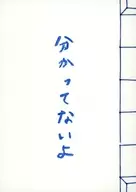 分かってないよ